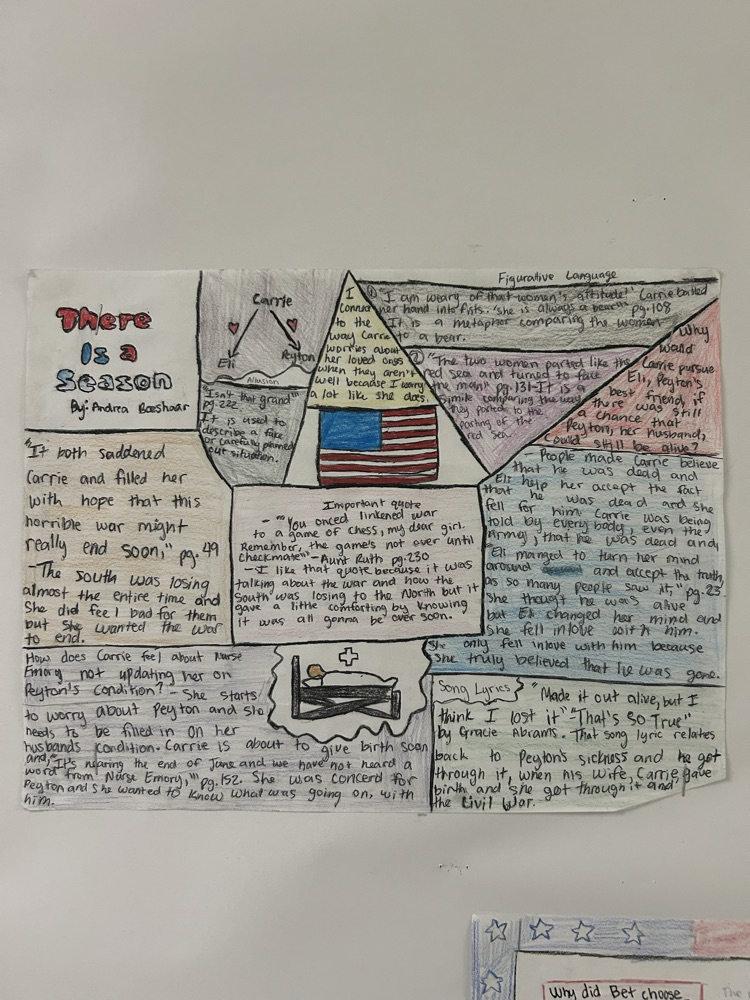 There
Is a
Season
By: Andrea Boeshaar
Carrie
Eli
Peyton
Allusion
"Isn't that grand"
pg.222
It is used to
describe a fake
or carefully planned
out situation.
I
Conna
to the
way Carrie
worries about
her loved ones
when they aren't
well because I worry
a lot like she does.
Figurative Language
① "I am weary of that women's attitude!" Carrie balled
her hand into fists. "She is always a bear" pg.108
It is a metaphor comparing the women
to a bear.
② "The two women parted like the
red sea and turned to face
the man" pg.131-It is a
Simile comparing the way
they parted to the
parting of the
red Sea.
Why
would
Carrie pursue
Eli, Peyton's
best friend, if
there was still
a chance that
Peyton, her husband,
could still be alive?
- People made Carrie believe
that he was dead and
Eli help her accept the fact
that he was dead and she
fell for him. Carrie was being
told by everybody, even the
Army, that he was dead and
"Eli manged to turn her mind
around and accept tha truth,
as so many people saw it," pg.23
She thought he was alive
but Eli changed her mind and
She fell inlove with him.
She only fell inlove with him because
She truly believed that he was gone.
"It both saddened
Carrie and filled her
with hope that this
horrible war might
really end soon," pg.49
-The South was losing
almost the entire time and
She did feel bad for them
but She wanted the war
to end.
Important quote
- "You onced linkened war
to a game of chess, my dear girl.
Remember, the game's not over until
Checkmate" - Aunt Ruth pg.230
-I like that quote because it was
talking about the war and how the
South was losing to the North but it
gave a little comforting by knowing
it was all gonna be over soon.
How does Carrie feel about Nurse
Emory not updating her on
Peyton's condition? - She starts
to worry about Peyton and she
needs to be filled in on her
husbands condition. Carrie is about to give birth soon
and, "It's nearing the end of June and we have not heard a
word from Nurse Emory," pg.152. She was concerd for
Peyton and She wanted to know what was going on, with
him.
Song Lyrics
"Made it out alive, but I
think I lost it" "That's SO True"
by Gracie Abrams. That song lyric relates
back to Peyton's sickness and he got
through it, when his wife, Carrie gave
birth and she got through it and
the Civil War.
Why did Bet choose
The